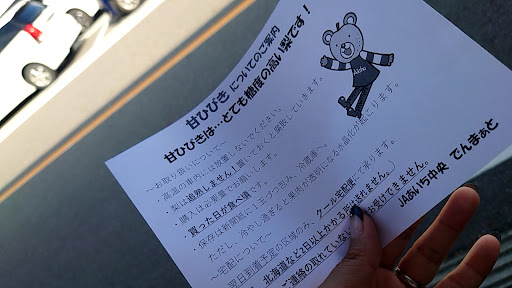 甘ひびき についてのご案内
甘ひびきは…とても糖度の高い梨です!
～お取り扱いについて～
・高温の車内には放置しないでください。
・梨は追熟しません!置いておくと腐敗していきます。
・購入は必要量でお願いします。
・買った日が食べ頃です。
・保存は新聞紙に1玉づつ包み、冷蔵庫へ。
ただし、冷やし過ぎると果肉が透明になる水晶化が起こります。
～宅配について～
・翌日到着予定の区域のみ、クール宅配便にて承ります。
北海道など2日以上かかる
されません。)
ご連絡の取れていない
お受けできません。
JAあいち中央 でんまぁと